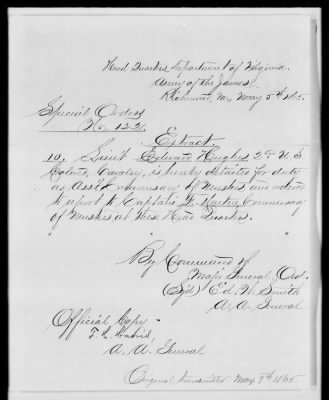 Head Quarters Department of Virginia
Army of the James
Richmond, Va, May 5th 1865.
Special Orders
No. 122
Extract
10. Lieut Edward Hughes 2nd U.S.
Colored Cavalry, is hereby detailed for duty
as Asst Commissary of Musters and ordered
to report to Captain Commissary
of Musters at these Head Quarters.
By Command of
Major General, Ord.
(Sgd) Ed. W. Smith
A. A. General
Official Copy
A. A. General
Original transmitted May 7th 1865